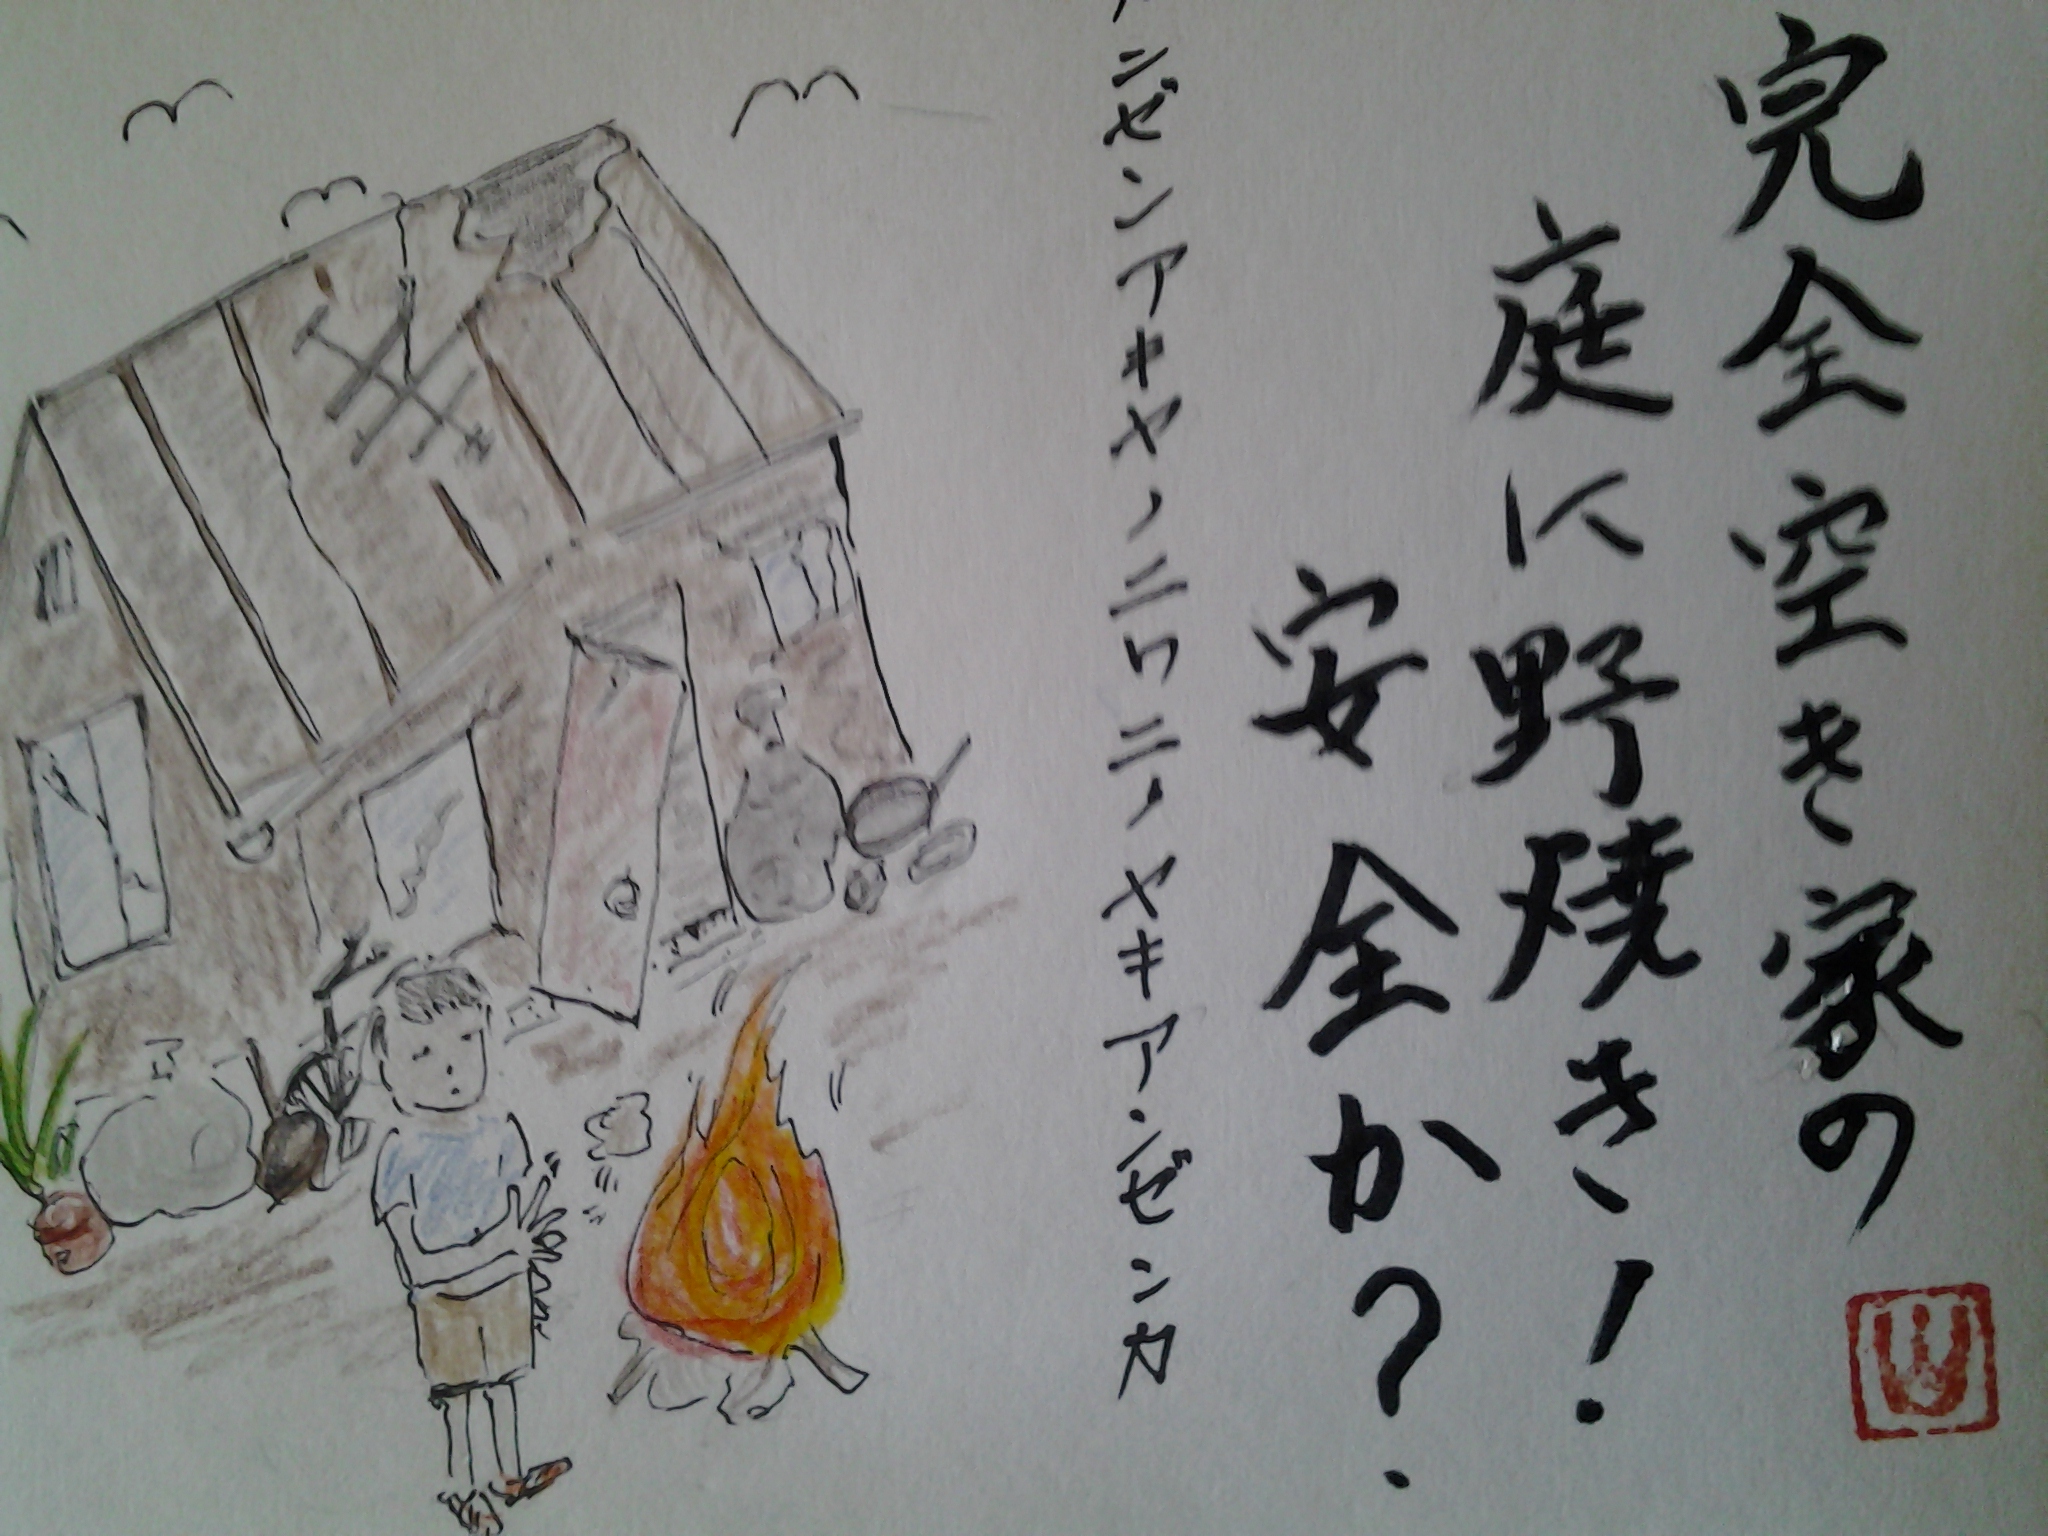 完全空き家の
庭に野焼き！
安全か？
ンゼンアキヤノニワニノヤキアンゼンカ
山